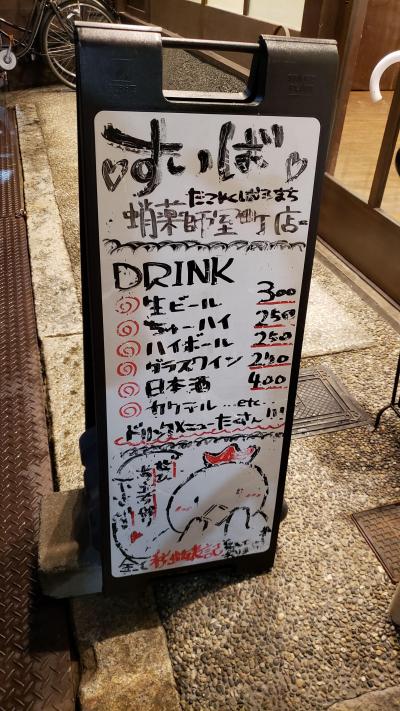 すいば
蛸薬師室町店
DRINK
生ビール 300
ちゅーハイ 250
ハイボール 250
グラスワイン 250
日本酒 400
カクテル...etc
ドリンクメニューたくさん!!!